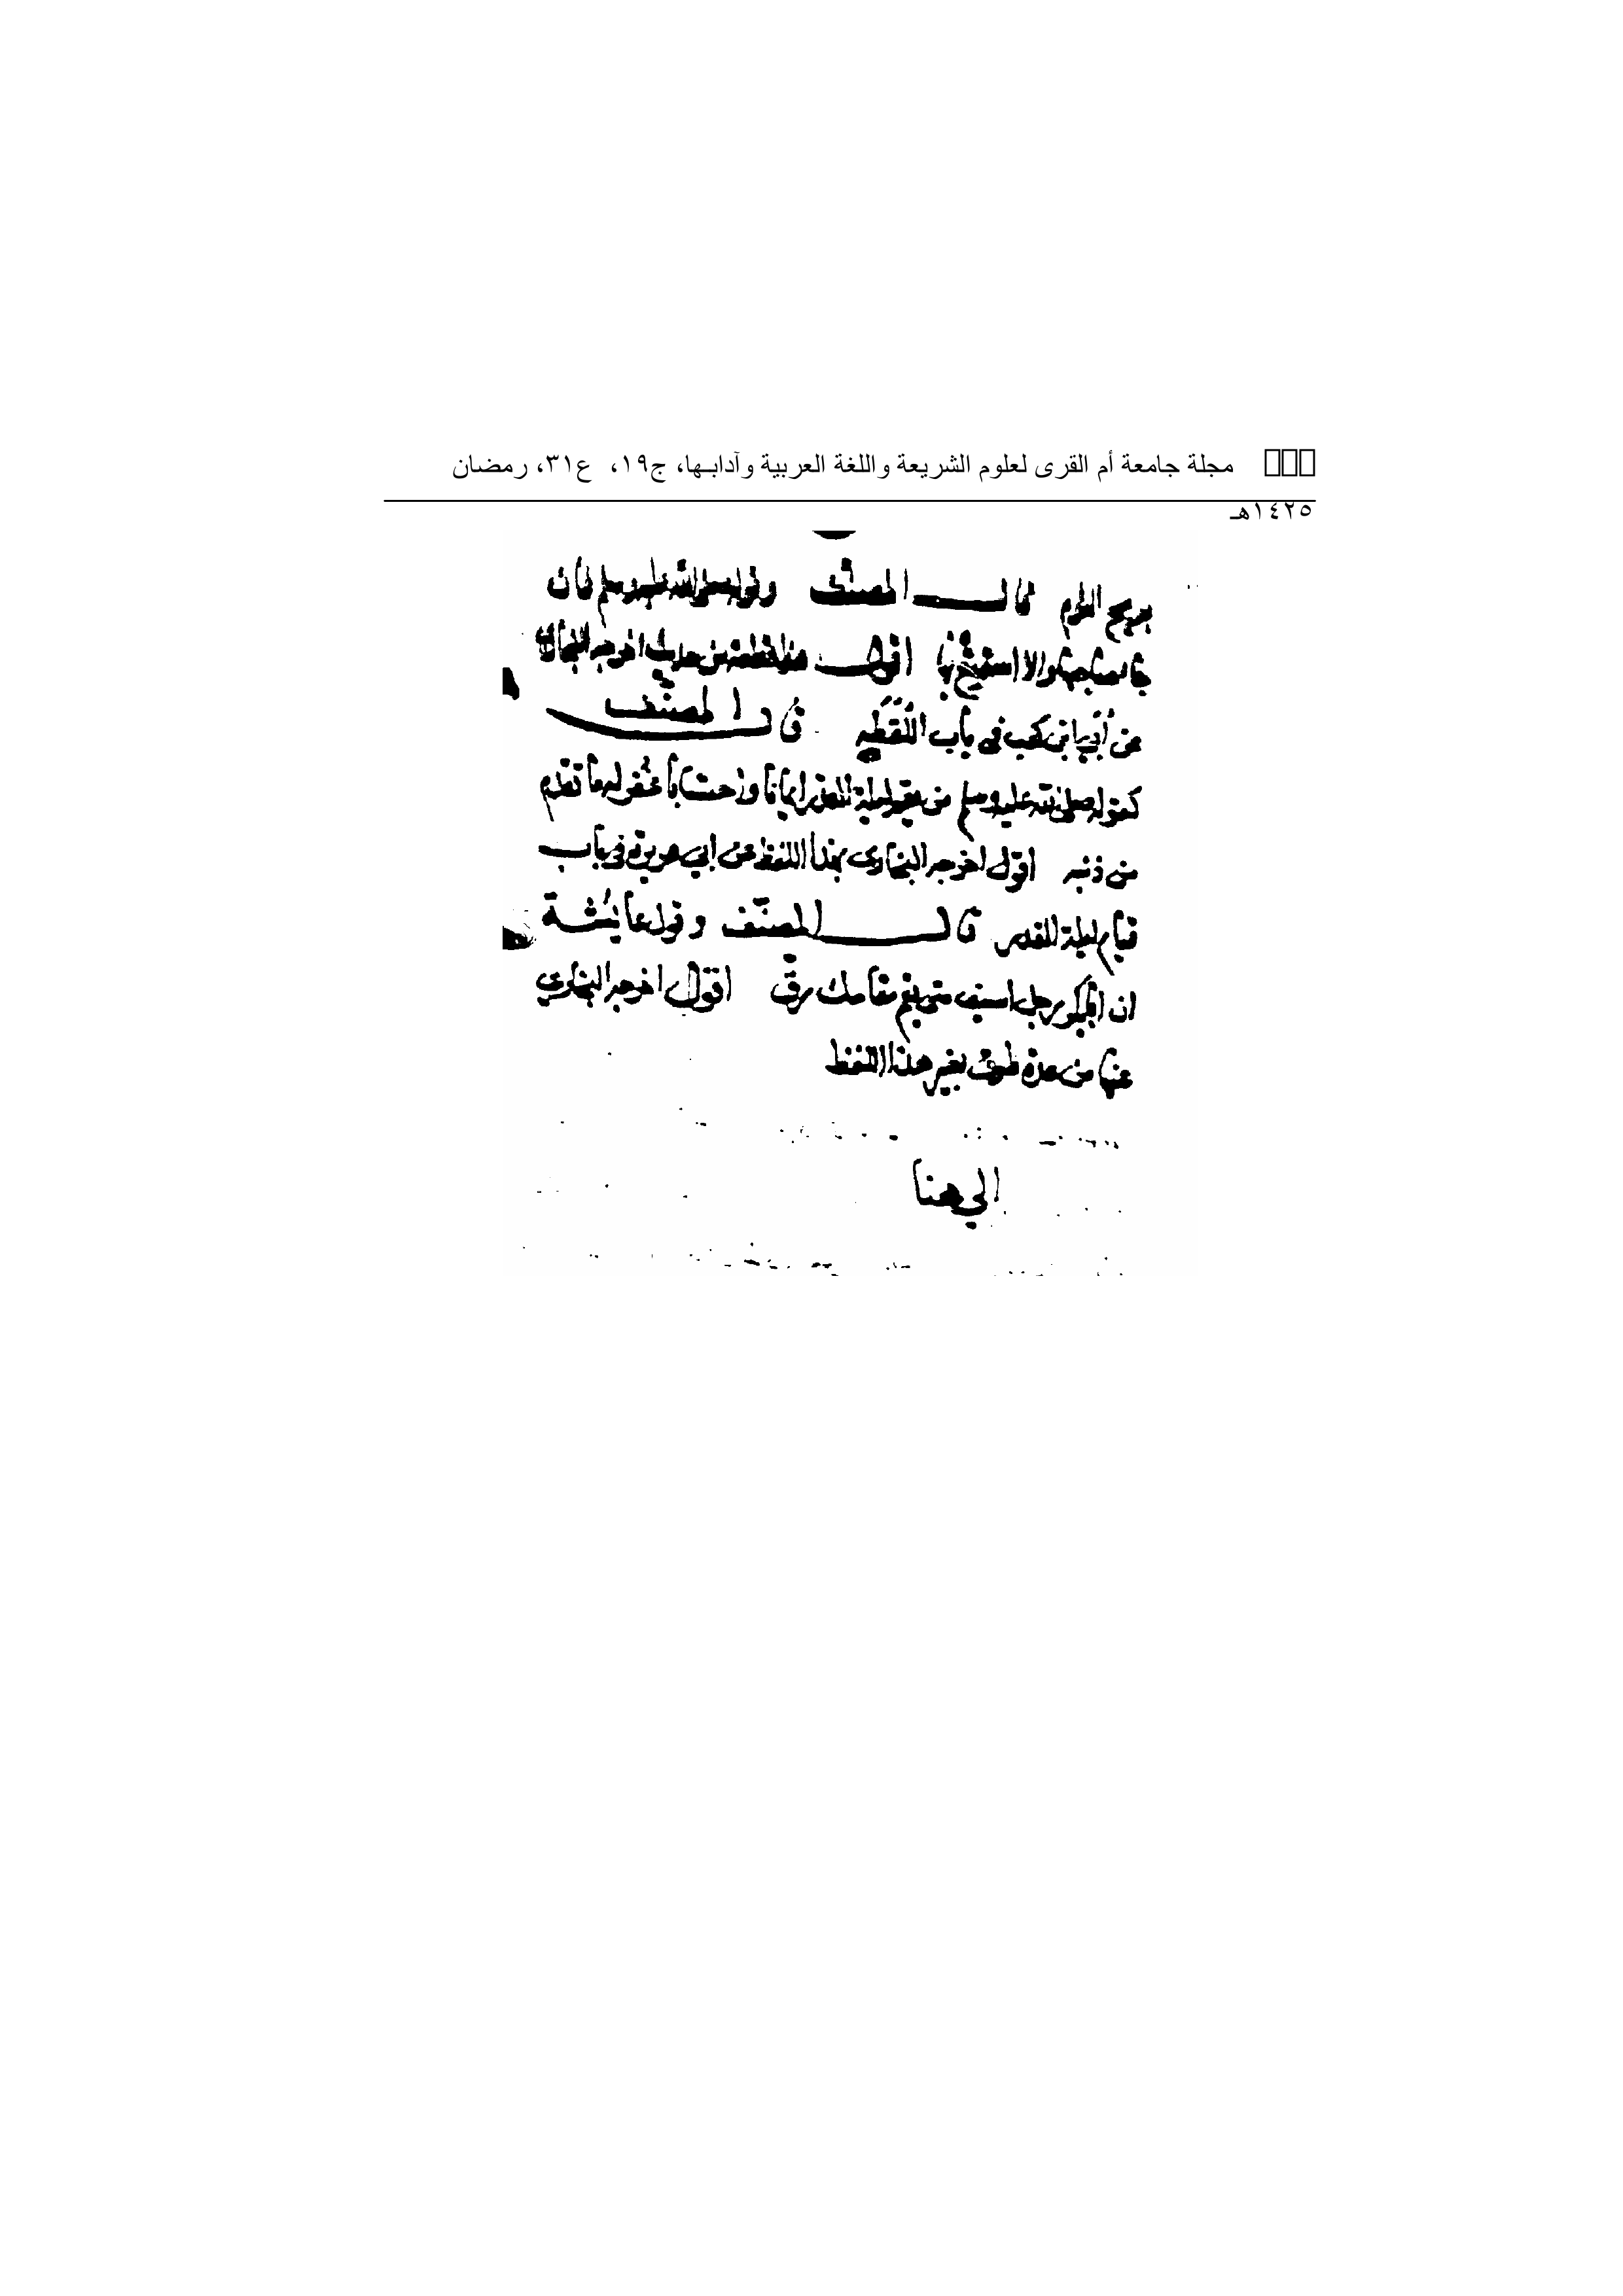 مجلة جامعة أم القرى لعلوم الشريعة واللغة العربية وآدابـها، ج١٩، ع٣١، رمضان
١٤٢٥هـ
قال المصنف وقوله صلى الله عليه وسلم فان
جا صاحبها والا استمتع بها اقول هذا قطعة من حديث اخرجه البخاري
عن أُبَيّ ابن كعب في باب اللُّقَطَه قال المصنّف
كقوله صلى الله عليه وسلم من يقم ليلة القدر ايمانا واحتسابا غفر له ما تقدم
من ذنبه اقول اخرجه البخاري بهذا اللفظ عن ابي هريرة في باب
قيام ليلة القدر قال المصنّف وقول عايشة
ان ابا بكر رجل اسيف متى يقم مقامك رقّ اقول اخرجه البخاري
عنها من عدة طرق بغير هذا اللفظ
الي هنا